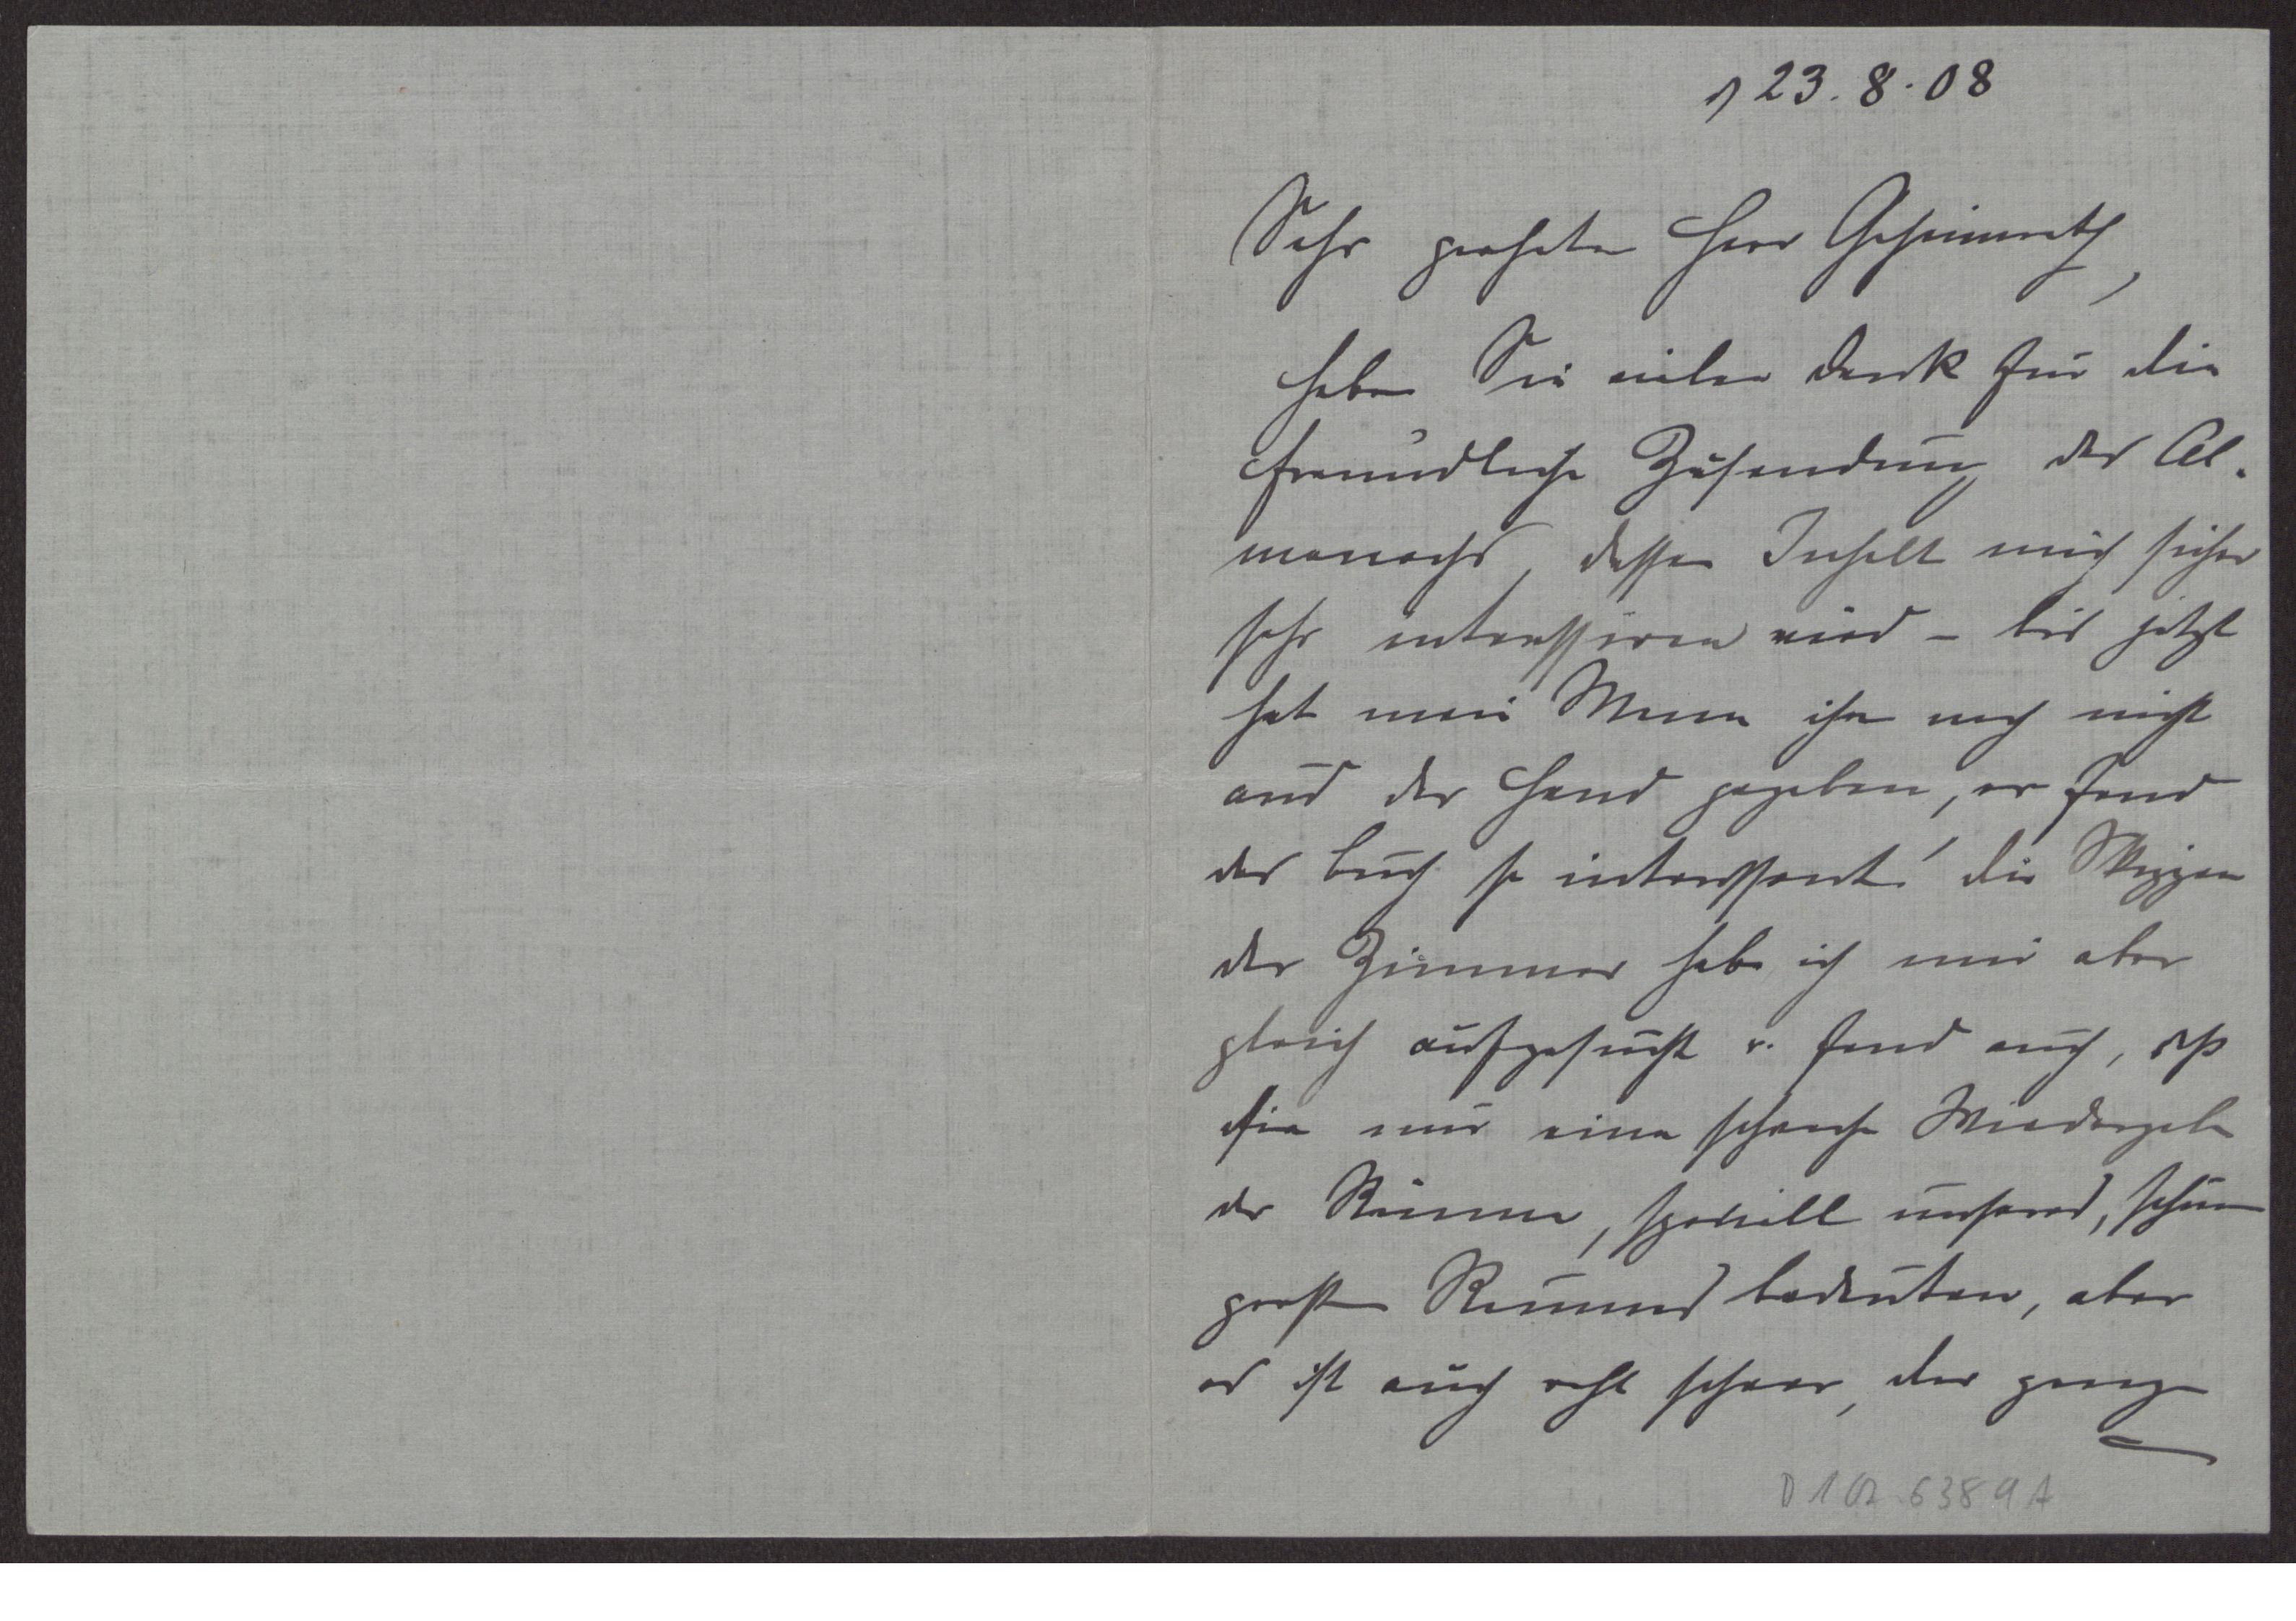 23.8.08
Sehr geehrter Herr Geheimrath,
haben Sie vielen Dank für die
freundliche Zusendung des Al-
manachs, dessen Inhalt mich sicher
sehr interessiren wird – bis jetzt
hat mein Mann ihn noch nicht
aus der Hand gegeben, er fand
das Buch so interessant! die Skizzen
der Zimmer habe ich mir aber
gleich aufgesucht u. fand auch, daß
sie nur eine schwache Wiedergabe
der Räume, speciell unseres, schönen
großen Raumes bedeuten, aber
es ist auch recht schwer, der ganze
D 102.6389A